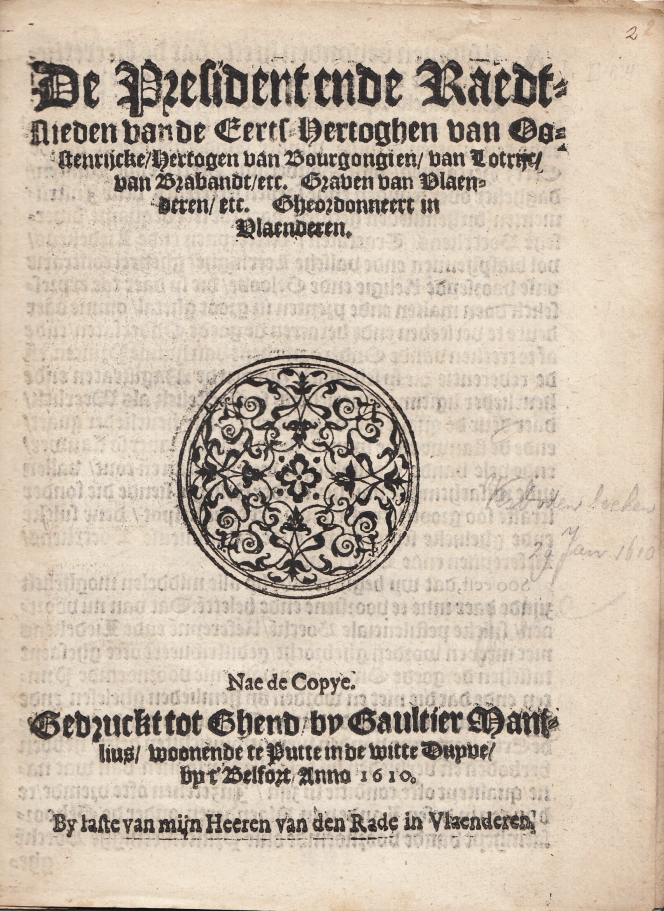 2
De President ende Raedt-
slieden vande Eerts-Hertoghen van Oo-
stenrijcke/Hertogen van Bourgongien/ van Lotrijc/
van Brabandt/etc. Graven van Vlaen-
deren/ etc. Gheordonneert in
Vlaenderen.
Verboden boeken
29 Jan 1610
Nae de Copye.
Gedruckt tot Ghend/by Gaultier Mani-
lius/ woonende te Putte inde witte Duyve/
by t'Belfort, Anno 1610.
By laste van mijn Heeren van den Rade in Vlaenderen.